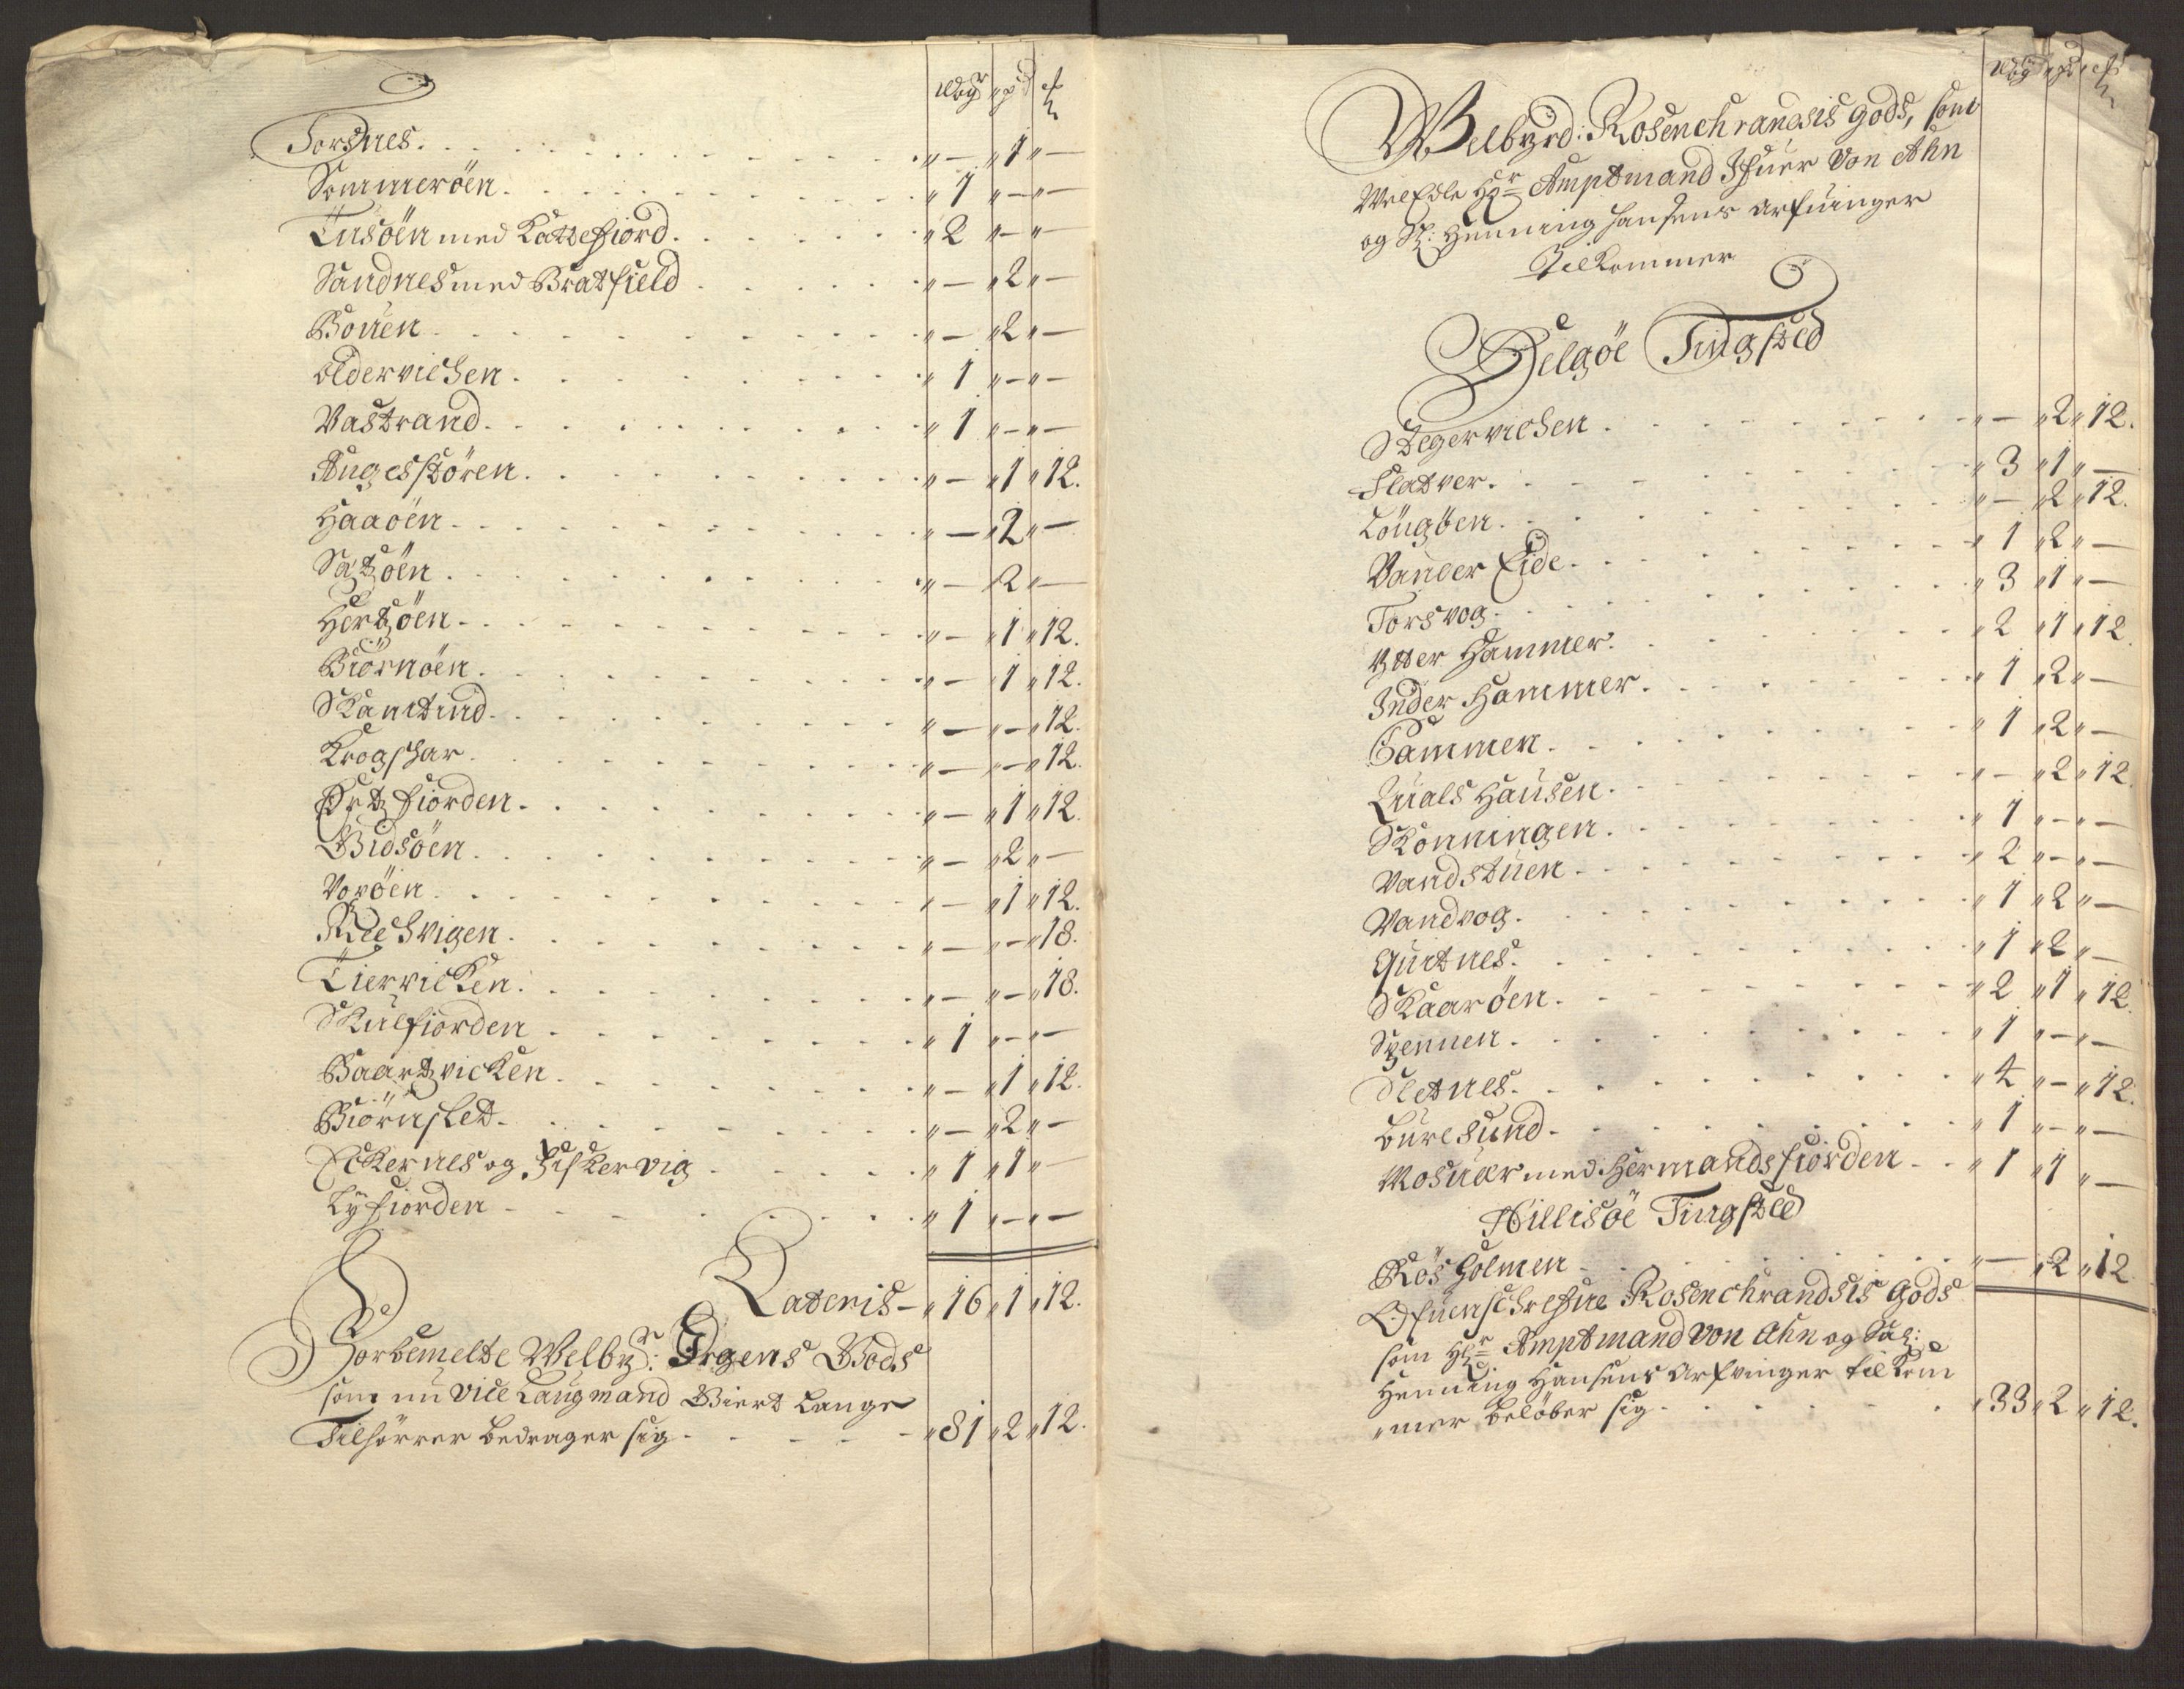 Wogr " pd " ℔
Torsnes. . . . . " — " 1 " —
Sommeröen. . . . . " 1 " — " —
Tusöen med Kattefiord. . . . . " 2 " — " —
Sandnes med Bratfield . . . . . " — " 2 " —
Bouen . . . . . " — " 2 " —
oldervichen . . . . . " 1 " — " —
Vastrand. . . . . " 1 " — " —
Auges stören. . . . . " — " 1 " 12.
Haaöen . . . . . " — " 2 " —
Satzöen . . . . . " — " 2 " —
Hertzöen . . . . . " — " 1 " 12.
Biörnöen . . . . . " — " 1 " 12.
Skamtind . . . . . " — " — " 12.
Krogshar . . . . . " — " — " 12.
Ertzfiorden . . . . . " — " 1 " 12.
Vidsöen . . . . . " — " 2 " —
Voröen . . . . . " — " 1 " 12.
Rechvigen . . . . . " — " — " 18.
Tiervicken. . . . . " — " — " 18.
Skulfiorden . . . . . " 1 " — " —
Baartzvicken . . . . . " — " 1 " 12.
Biörnsket . . . . . " — " 2 " —
Eckernes og Fiskervig . . . . . " 1 " 1 " —
Lyfiorden . . . . . " 1 " — " —
Lateris — " 16 " 1 " 12.
Forbemelte Welbr: Irgens Gods
som nu Vice Laugmand Giert Lange
Tilhörrer bedrager sig . . . . . " 81 " 2 " 12.
Wog " pd " ℔
Welbyrd: Rosenchrandsis gods, som
WelEdle Hr Amptmand Ifuer Von Ahn
og Sl: Henning Hansens arfuinger
Tilkommer
Helgöe Tingsted
Stegervichen . . . . . " — " 2 " 12.
Flatver. . . . . " 3 " 1 " —
Löugöen . . . . . " — " 2 " 12.
Vander Eide. . . . . " 1 " 2 " —
Torsvog . . . . . " 3 " 1 " —
Ytter Hammer. . . . . " 2 " 1 " 12.
Inder Hammer. . . . . " 1 " 2 " —
Gammen . . . . . " 1 " 2 " —
Quals Hausen. . . . . " — " 2 " 12
Skonningen. . . . . " 1 " — " —
Vandstuen . . . . . " 2 " — " —
Vandvog. . . . . " 1 " 2 " —
Quitnes. . . . . " 1 " 2 " —
Skaaröen. . . . . " 2 " 1 " 12.
Spennen . . . . . " 1 " — " —
Sletnes. . . . . " 4 " — " 12.
Buresund . . . . . " 1 " — " —
Mosuer med Hermandsfiorden . . " 1 " 1 " —
Hillisöe Tingsted
Rös Holmen . . . . . " — " 2 " 12
Ofuenschrefne Rosenchrandsis Gods
som Hr Amptmand Von Ahn og Sal:
Henning Hansens Arfvinger tilkom
"mer belöber sig . . . . . " 33 " 2 " 12.